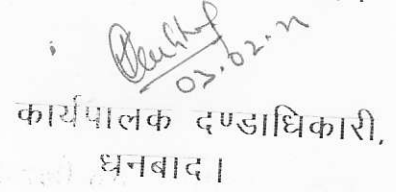 03.02.21
कार्यपालक दण्डाधिकारी,
धनबाद।